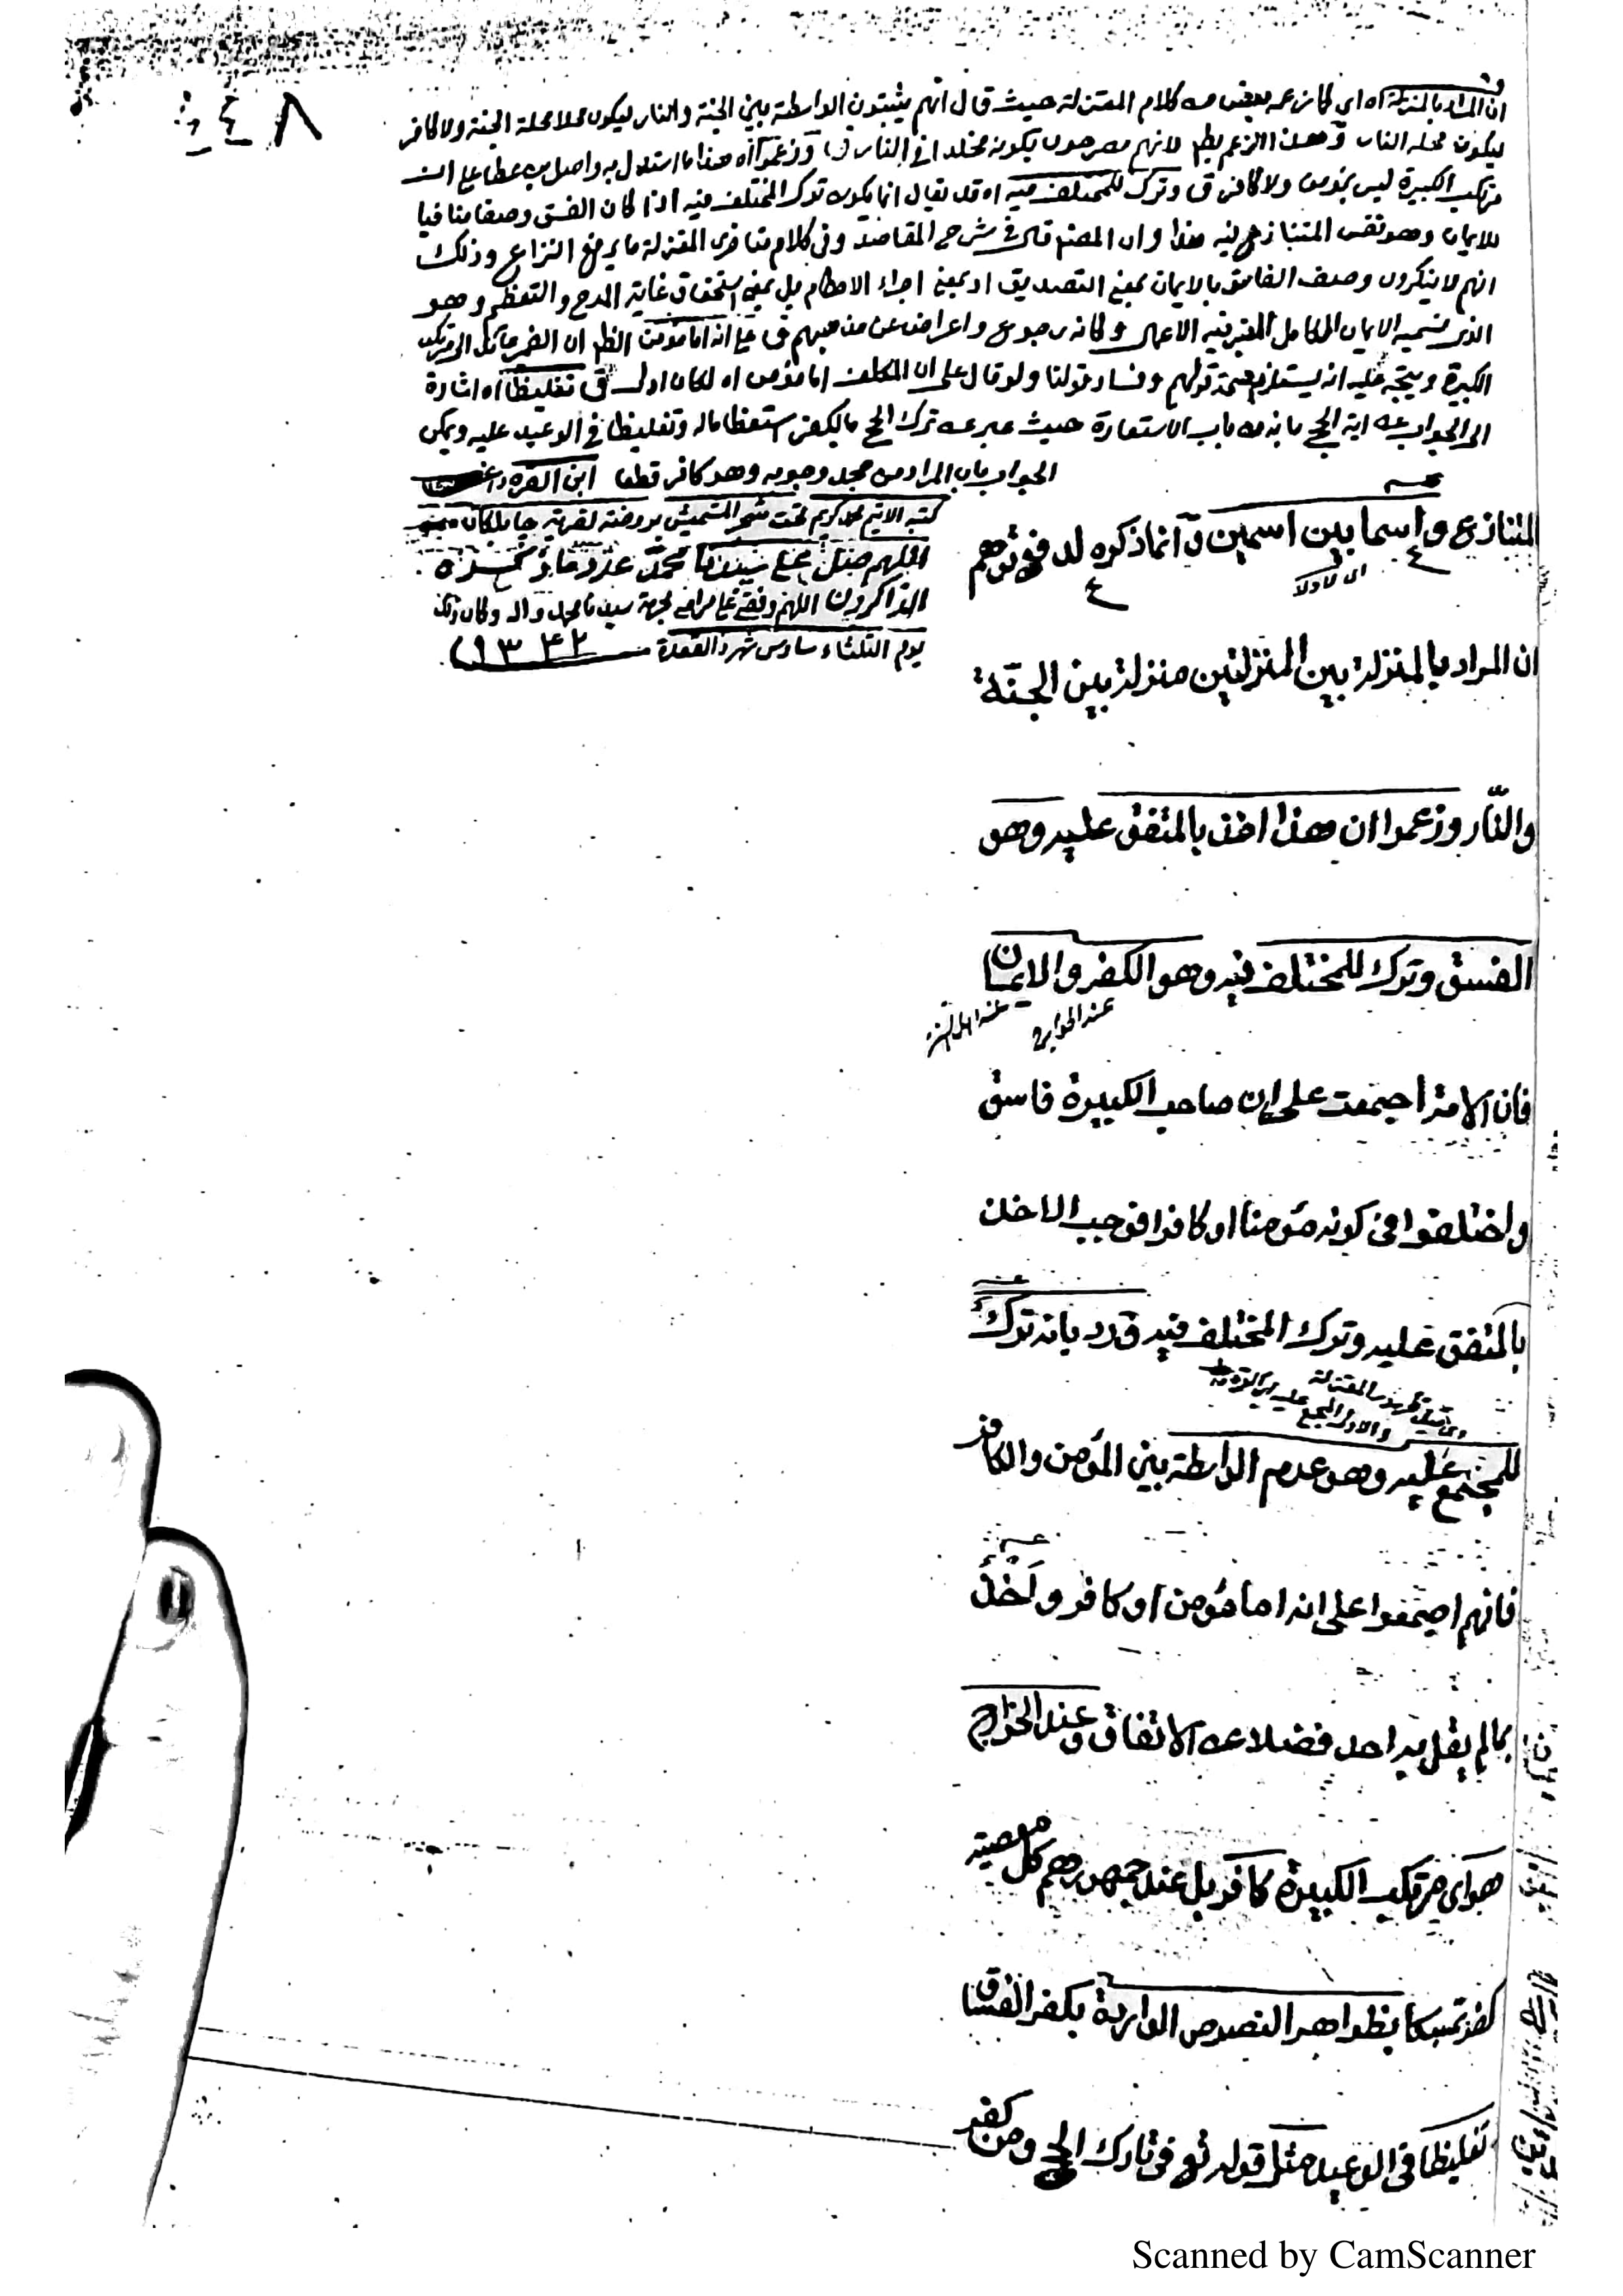 ٤٨
ان المراد بالمنزلة اه اي كما زعمه بعض من كلام المعتزلة حيث قال انهم يثبتون الواسطة بين الجنة والنار ليكون محلا محلة الجنة ولا كافر
ليكون محله النار وهذا الزعم بط لانهم مصرحون بكونه مخلدا في النار وزعموا اه هذا ما استدل به واصل بن عطا على ان
مرتكب الكبيرة ليس بمؤمن ولا كافر ق وترك للمختلف فيه اه قد يقال انما يكون ترك المختلف فيه اذا كان الفسق وصفا منافيا
للايمان وهو نفس المتنازع فيه هذا وان المصنف قال في شرح المقاصد وفي كلام متأخرى المعتزلة ما يرفع النزاع وذلك
انهم لا ينكرون وصف الفاسق بالايمان بمعنى التصديق او بمعنى اجراء الاحكام بل بمعنى استحقاق غاية المدح والتعظيم وهو
الذى نسميه الايمان الكامل المعتبر فيه الاعمال وكانه رجوع واعراض عن مذهبهم ق على انه اما مؤمن الظ ان الضمير
الكبيرة ويتجه عليه انه يستلزم صحة قولهم وفساد قولنا ولو قال على ان المكلف اما مؤمن اه لكان اولى ق تغليظا اه اشارة
الى الجواب عن اية الحج بانه من باب الاستعارة حيث عبر عن ترك الحج بالكفر استعظاما له وتغليظا في الوعيد عليه ويمكن
الجواب بان المراد من جحد وجوبه وهو كافر قطعا ابن القره داغى
كتبه الاثيم محمد كريم تحت شجر المشمش
اللهم صل على سيدنا محمد عدد ما ذكره
الذاكرون اللهم وفقني بحرمة سيدنا محمد واله وكان ذلك
يوم الثلثاء سادس شهر ذا القعدة ١٣٤٢
المتنازع واسما بين اسمين ق انما ذكره لدفع توهم
ان المراد بالمنزلة بين المنزلتين منزلة بين الجنّة
والنّار وزعموا ان هذا اخذ بالمتفق عليه وهو
الفسق وترك للمختلف فيه وهو الكفر والايمان
عند الخوارج
عند اهل السنة
فان الامة اجمعت على ان صاحب الكبيرة فاسق
واختلفوا فى كونه مؤمنا او كافرا فوجب الاخذ
بالمتفق عليه وترك المختلف فيه ق رد بانه ترك
للمجمع عليه وهو عدم الواسطة بين المؤمن والكافر
فانهم اجمعوا على انه اما مؤمن او كافر واَخْذٌ
بمالم يقل به احد فضلا عن الاتفاق وعند الخوارج
هو اى مرتكب الكبيرة كافر بل عند جمهورهم كل معصية
كفر تمسكا بظواهر النصوص الواردة بكفر الفساق
تغليظا فى الوعيد مثل قوله تع فى تارك الحج ومن كفر
Scanned by CamScanner